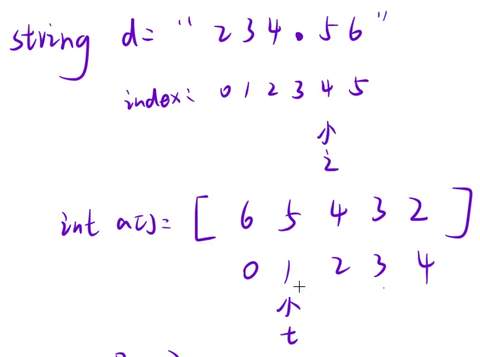 string d= "234.56"
index: 0 1 2 3 4 5
↑
i
int a[]= [ 6 5 4 3 2 ]
0 1 2 3 4
↑
t